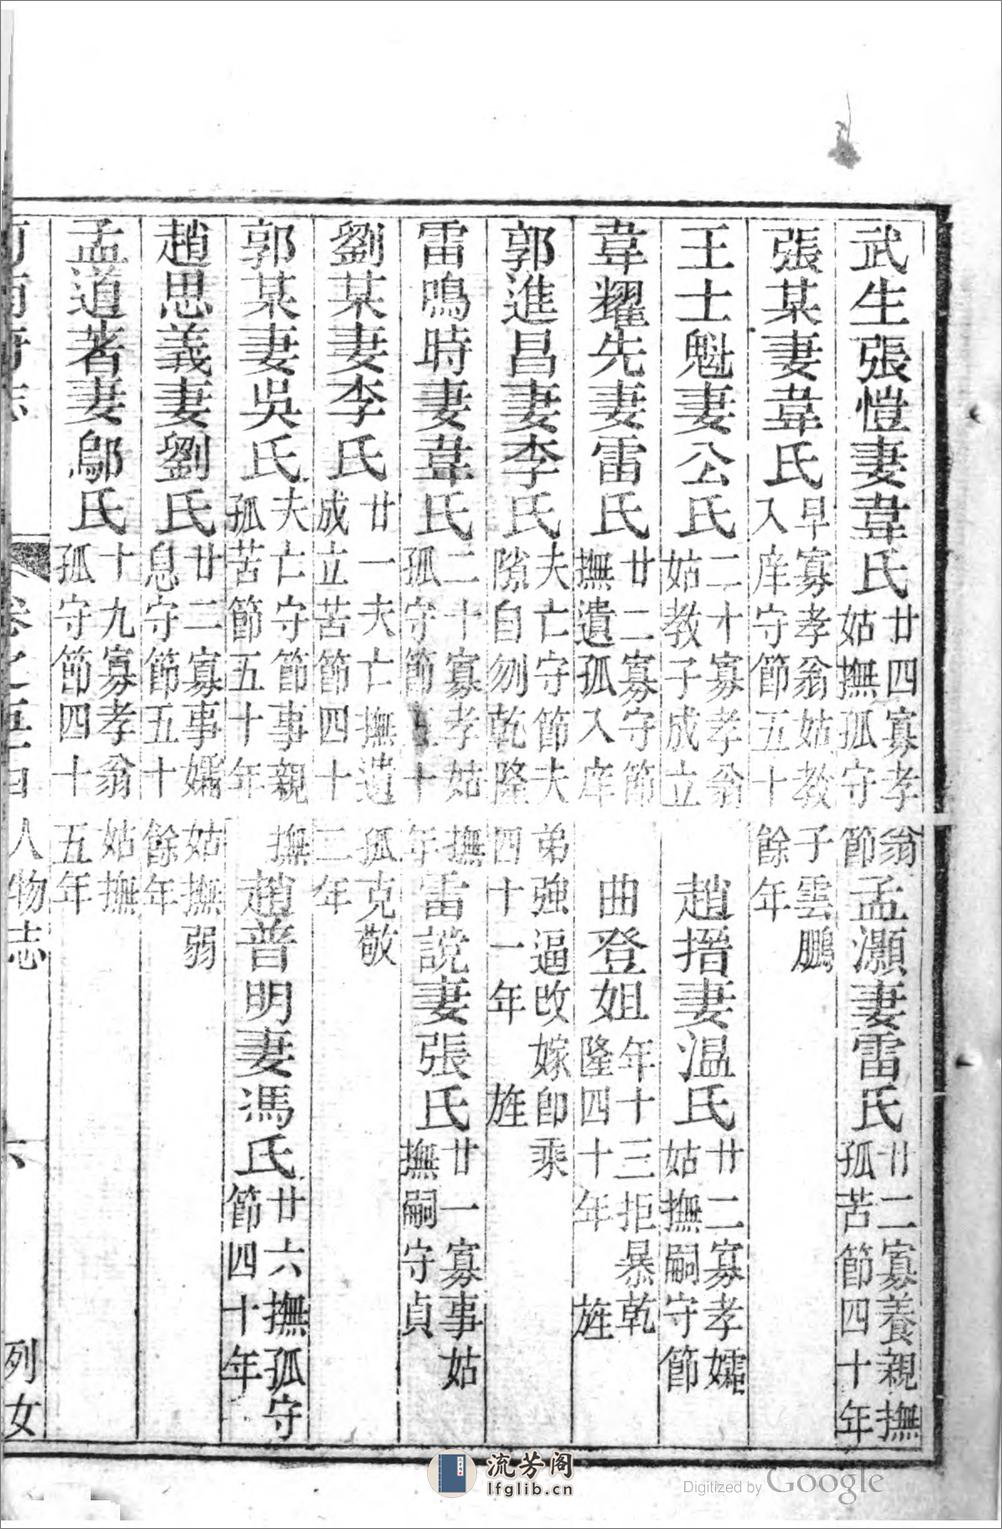 武生張愷妻韋氏廿四寡孝翁姑撫孤守節孟灝妻雷氏廿二寡養親撫孤苦節四十年
張某妻韋氏早寡孝翁姑教子雲鵬入庠守節五十餘年
王士魁妻公氏二十寡孝翁姑教子成立趙搢妻温氏廿二寡孝孀姑撫嗣守節
韋耀先妻雷氏廿二寡守節撫遺孤入庠曲登姐年十三拒暴乾隆四十年旌
郭進昌妻李氏夫亡守節夫弟強逼改嫁卽乘隙自刎乾隆四十一年旌
雷鳴時妻韋氏二十寡孝姑撫孤守節十年雷說妻張氏廿一寡事姑撫嗣守貞
劉某妻李氏廿一夫亡撫遺孤克敬成立苦節四十二年
郭某妻吳氏夫亡守節事親撫孤苦節五十年趙普明妻馮氏廿六撫孤守節四十年
趙思義妻劉氏廿二寡事孀姑撫弱息守節五十餘年
孟道著妻鄔氏十九寡孝翁姑撫孤守節四十五年
河南府志 卷之 人物志 六 列女
流芳阁
lfglib.cn
Digitized by Google